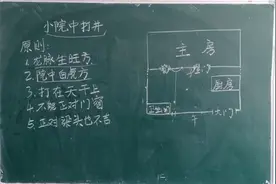 小院中打井
原则:
1. 龙脉生旺方
2. 院中白虎方
3. 打在天干上
4. 不能正对门窗
5. 正对梁头也不吉
主房
厨房
卫生间
大门
午